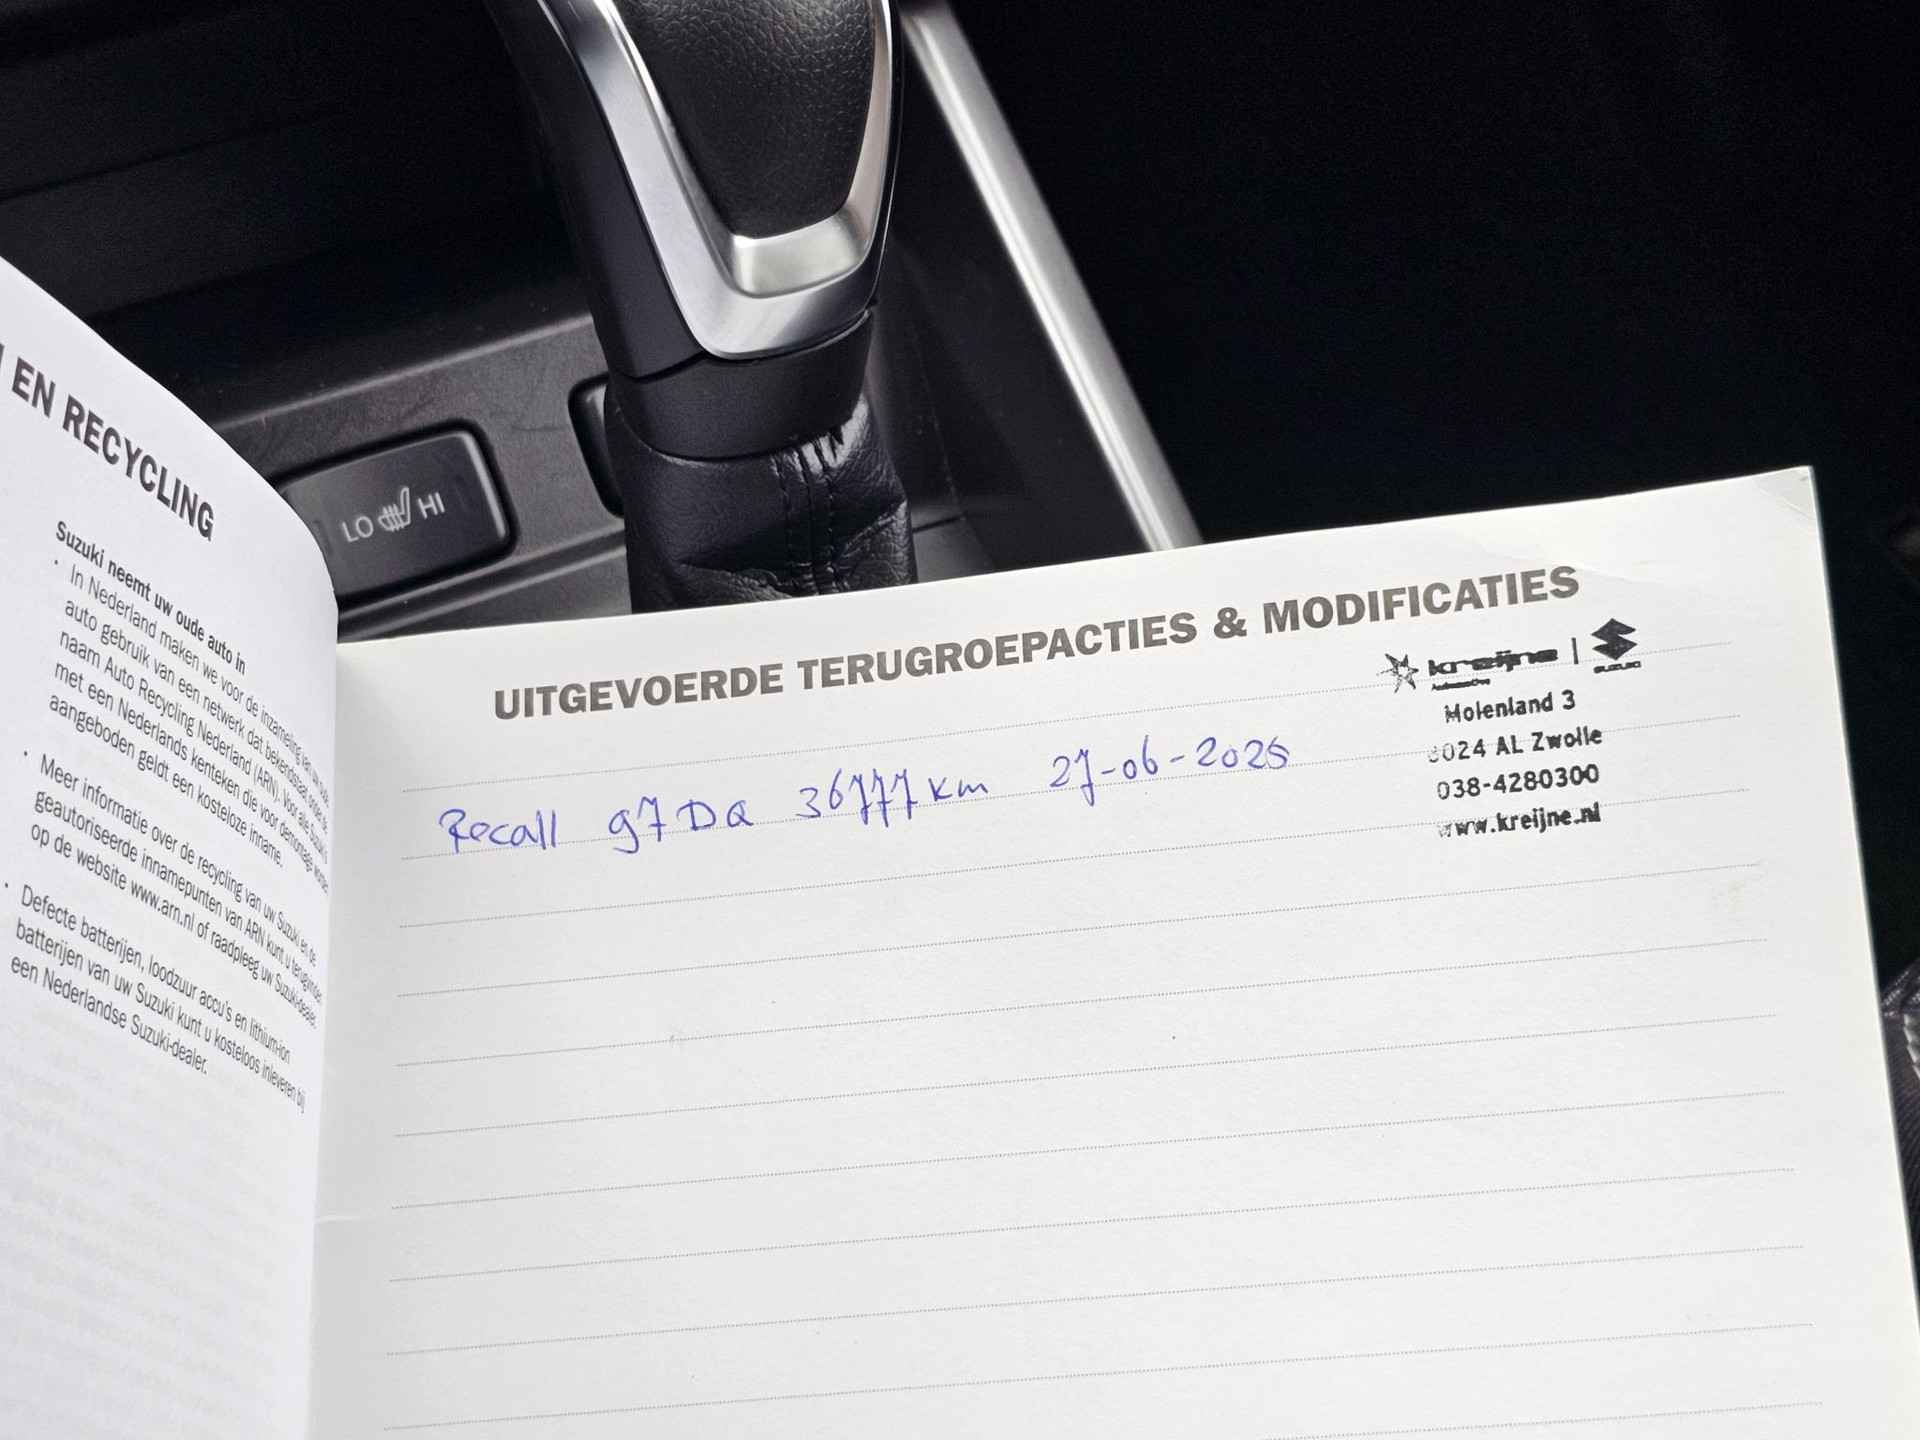 LO HI
EN RECYCLING
Suzuki neemt uw oude auto in
• In Nederland maken we voor de inzameling van uw oude
auto gebruik van een netwerk dat bekendstaat onder de
naam Auto Recycling Nederland (ARN). Voor alle Suzuki's
met een Nederlands kenteken die voor demontage worden
aangeboden geldt een kosteloze inname.
• Meer informatie over de recycling van uw Suzuki en de
geautoriseerde innamepunten van ARN kunt u terugvinden
op de website www.arn.nl of raadpleeg uw Suzuki-dealer.
• Defecte batterijen, loodzuur accu's en lithium-ion
batterijen van uw Suzuki kunt u kosteloos inleveren bij
een Nederlandse Suzuki-dealer.
UITGEVOERDE TERUGROEPACTIES & MODIFICATIES
kreijne | SUZUKI
Molenland 3
8024 AL Zwolle
038-4280300
www.kreijne.nl
Recall 97DQ 36777 km 27-06-2025